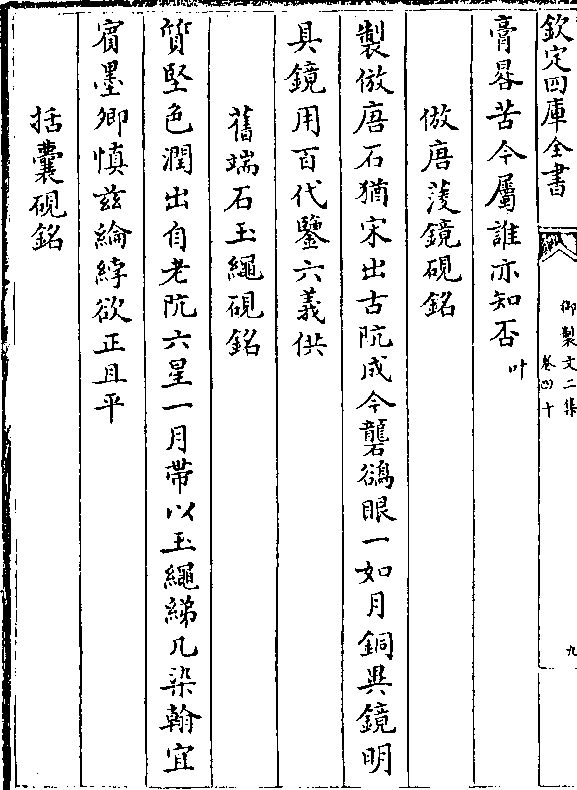 欽定四庫全書
御製文二集
卷四十
九
膏晷苦今屬誰亦知否叶
倣唐菱鏡硯銘
製倣唐石猶宋出古阬成今礱鵒眼一如月銅與鏡明
具鏡用百代鑒六義供
舊端石玉繩硯銘
質堅色潤出自老阬六星一月帶以玉繩綈几染翰宜
賔墨卿慎兹綸綍欲正且平
括囊硯銘